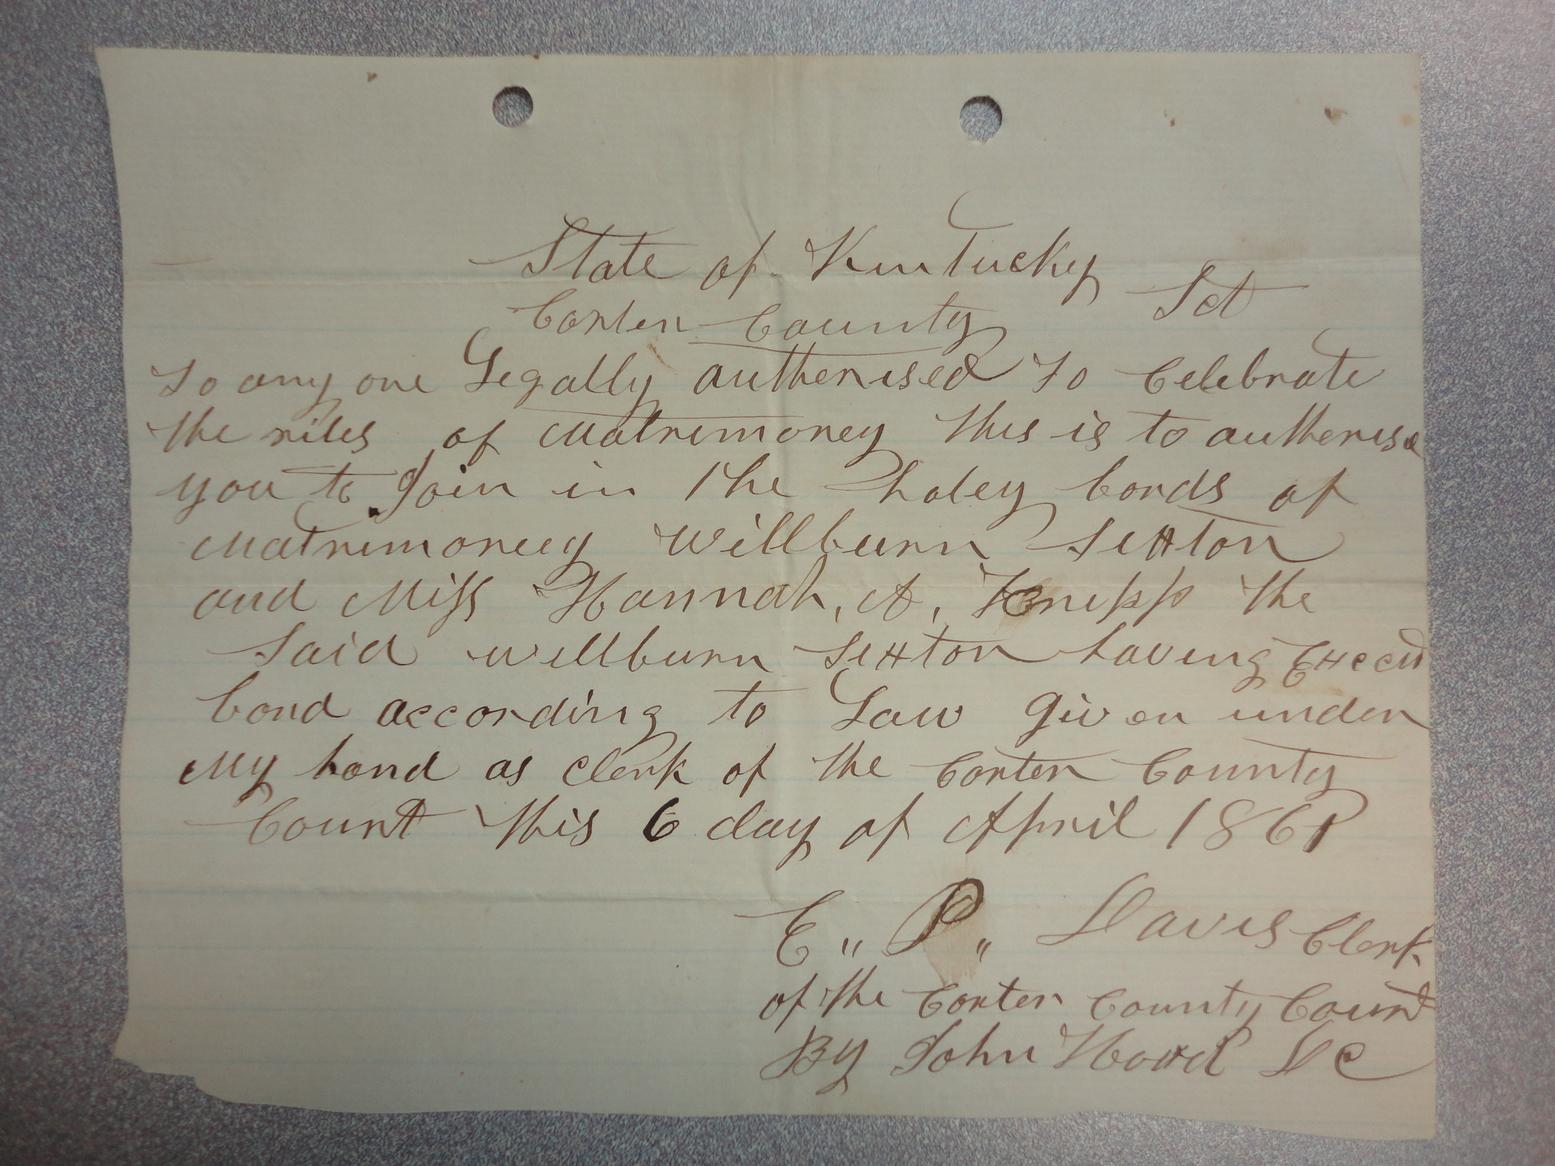 State of Kentucky
Carter County Sct
To any one Legally autherised To Celebrate
the rites of Matrimoney this is to autherise
you to Join in The holey bonds of
Matrimoney Willburn Sexton
and Miss Hannah, A, Knipp the
Said Willburn Sexton having Execut
bond according to Law Given under
My hand as clerk of the Carter County
Court this 6 day of April 1861
C,, P,, Davis Clerk
of the Carter County Court
By John D C